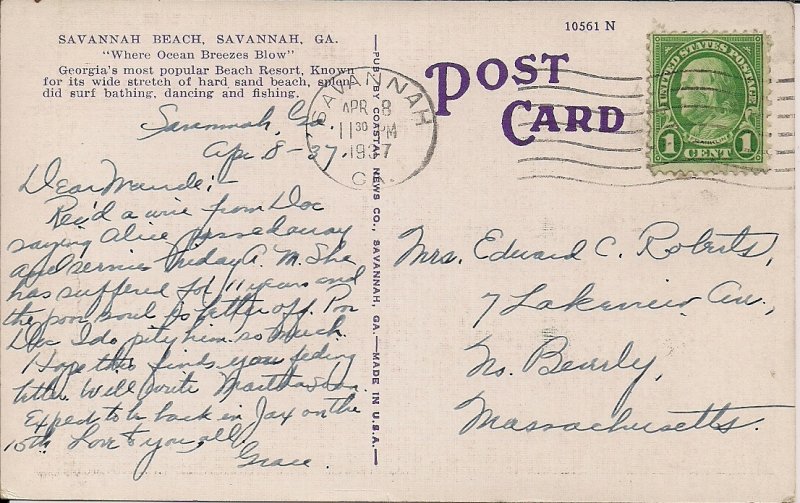 SAVANNAH BEACH, SAVANNAH, GA.
"Where Ocean Breezes Blow"
Georgia's most popular Beach Resort, Known
for its wide stretch of hard sand beach, splen-
did surf bathing, dancing and fishing.
Savannah, Ga.
Apr 8-37.
Dear Maude:-
Rec'd a wire from Doc
saying Alice passed away
and service Friday A.M. She
has suffered for 11 years and
the poor soul is better off. Poor
Doc I do pity him so much.
Hope this finds you feeling
better. Will write Martha
Expect to be back in Jax on the
15th Love to you all.
Grace.
PUB. BY COASTAL NEWS CO., SAVANNAH, GA.—MADE IN U.S.A.
10561 N
POST
CARD
SAVANNAH
APR 8
11 30 PM
1937
GA.
UNITED STATES POSTAGE
FRANKLIN
1 CENT 1
Mrs. Edward C. Roberts,
7 Lakeview Av.,
No. Beverly,
Massachusetts.